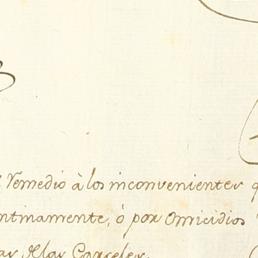 remedio à los inconvenientes q
ntinamente, ó por Omicidios
las Carceles.